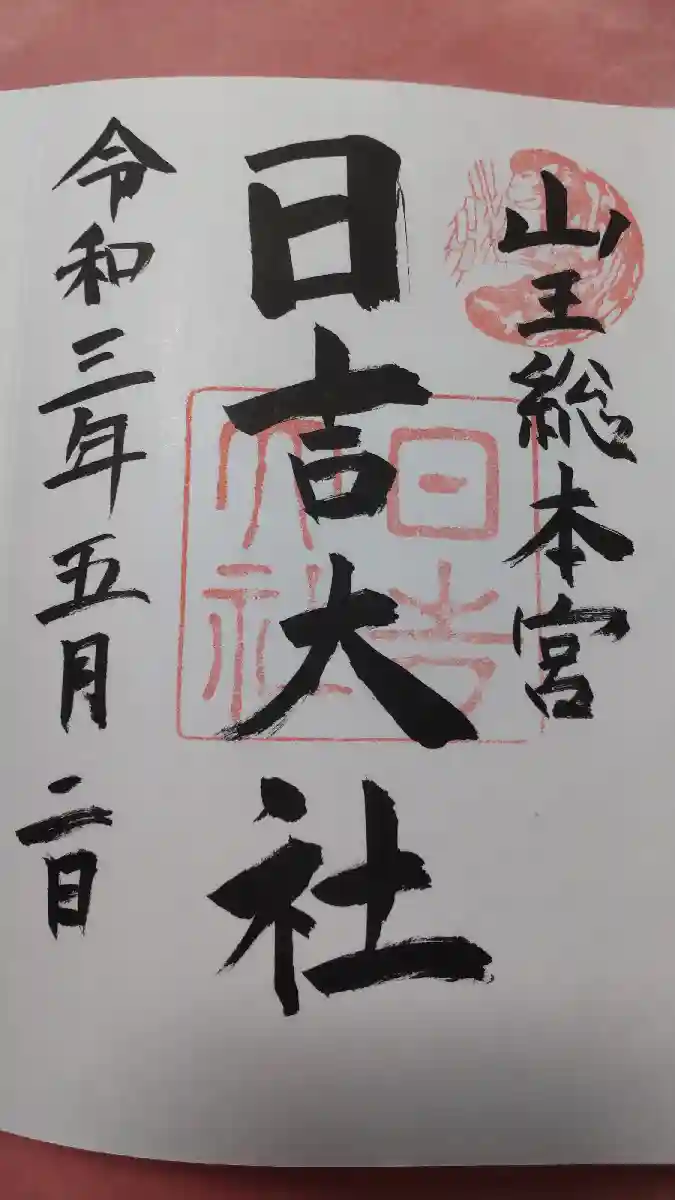 山王総本宮
日吉大社
日吉大社
令和三年五月二日